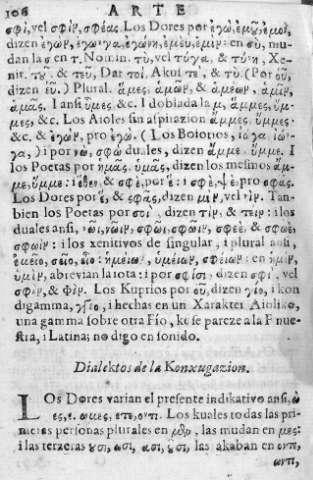 106 ARTE
σφὶ, vel σφὶν, σφέας. Los Dores por ἐγώ, ἐμοῦ, ἐμοί,
dizen ἐγών, ἐγώνγα, ἐγώνη, ἐμεῦ, ἐμίν: en σὺ, mu-
dan la s en τ. Nomin. τὺ, vel τύγα, & τύνη, Xe-
nit. τεῦ. & τεῦ, Dar τοί, Akuſ τὲ, & τὺ. (Por οὗ,
dizen εὗ.) Plural. ἅμες. ἁμῶν, & ἁμέων. ἁμῖν,
ἁμᾶς. I anſi ὕμες &c. I dobiada la μ, ἄμμες, ὔμ-
μες, &c. Los Aioles ſin aſpirazion ἄμμες. ὔμμες
&c. & ἐγὼν, pro ἐγώ. (Los Boiotios, ἰώγα
γα,) i por νω, σφω duales, dizen ἄμμε. ὔμμε. I
los Poetas por ἡμᾶς. ὑμᾶς, dizen los meſmos ἄμ-
με, ὔμμε: & σφὲ, por ἓ: i σφὲ, ψὲ, pro σφας.
Los Dores por ἓ, & σφᾶς, dizen μὶν, vel νὶν. Tan-
bien los Poetas por σοὶ, dizen τὶν, & τεὶν: i los
duales anſi, νῶϊ, νῶϊν, σφῶϊ, σφῶϊν, σφωὲ, & σφωὲ,
σφωὶν: i los xenitivos de ſingular, i plural anſi,
ἐμεῖο, σεῖο, εἷο: ἡμείων, ὑμείων, σφείων: en ἡμὶν,
ὑμὶν, abrevian la iota: i por σφίσι, dizen σφὶ, vel
σφὶν, & φὶν. Los Kuprios por οὗ, dizen γίο, i kon
digamma, i hechas en un Xarakter Aioliko,
una gamma ſobre otra Fío, ke ſe pareze a la F nueſ-
tra, i Latina; no digo en ſonido.
Dialektos de la Konxugazion.
LOS Dores varian el preſente indikativo anſi, ω
ες, ε. ωμες, ετε, οντι. Los kuales todas las pri-
meras perſonas plurales en μεν, las mudan en μες:
i las terzeras ουσι, ωσι, ασι, εισι, las akaban en οντι,
ωντι,